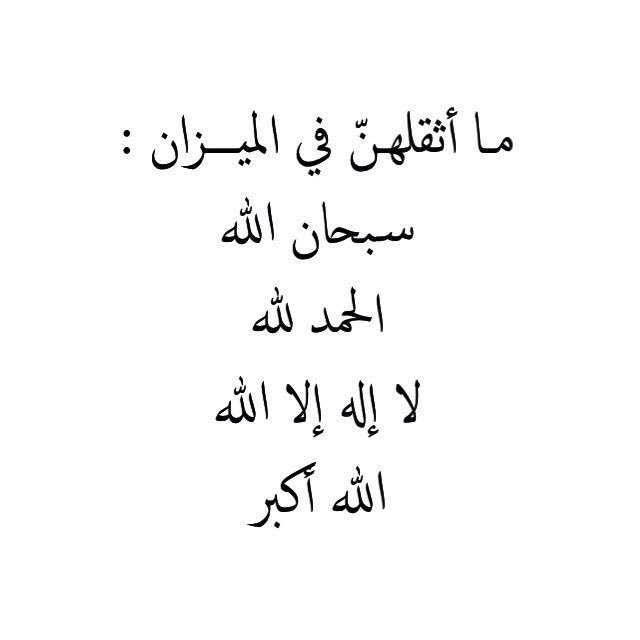 ما أثقلهنّ في الميـــزان :
سبحان الله
الحمد لله
لا إله إلا الله
الله أكبر